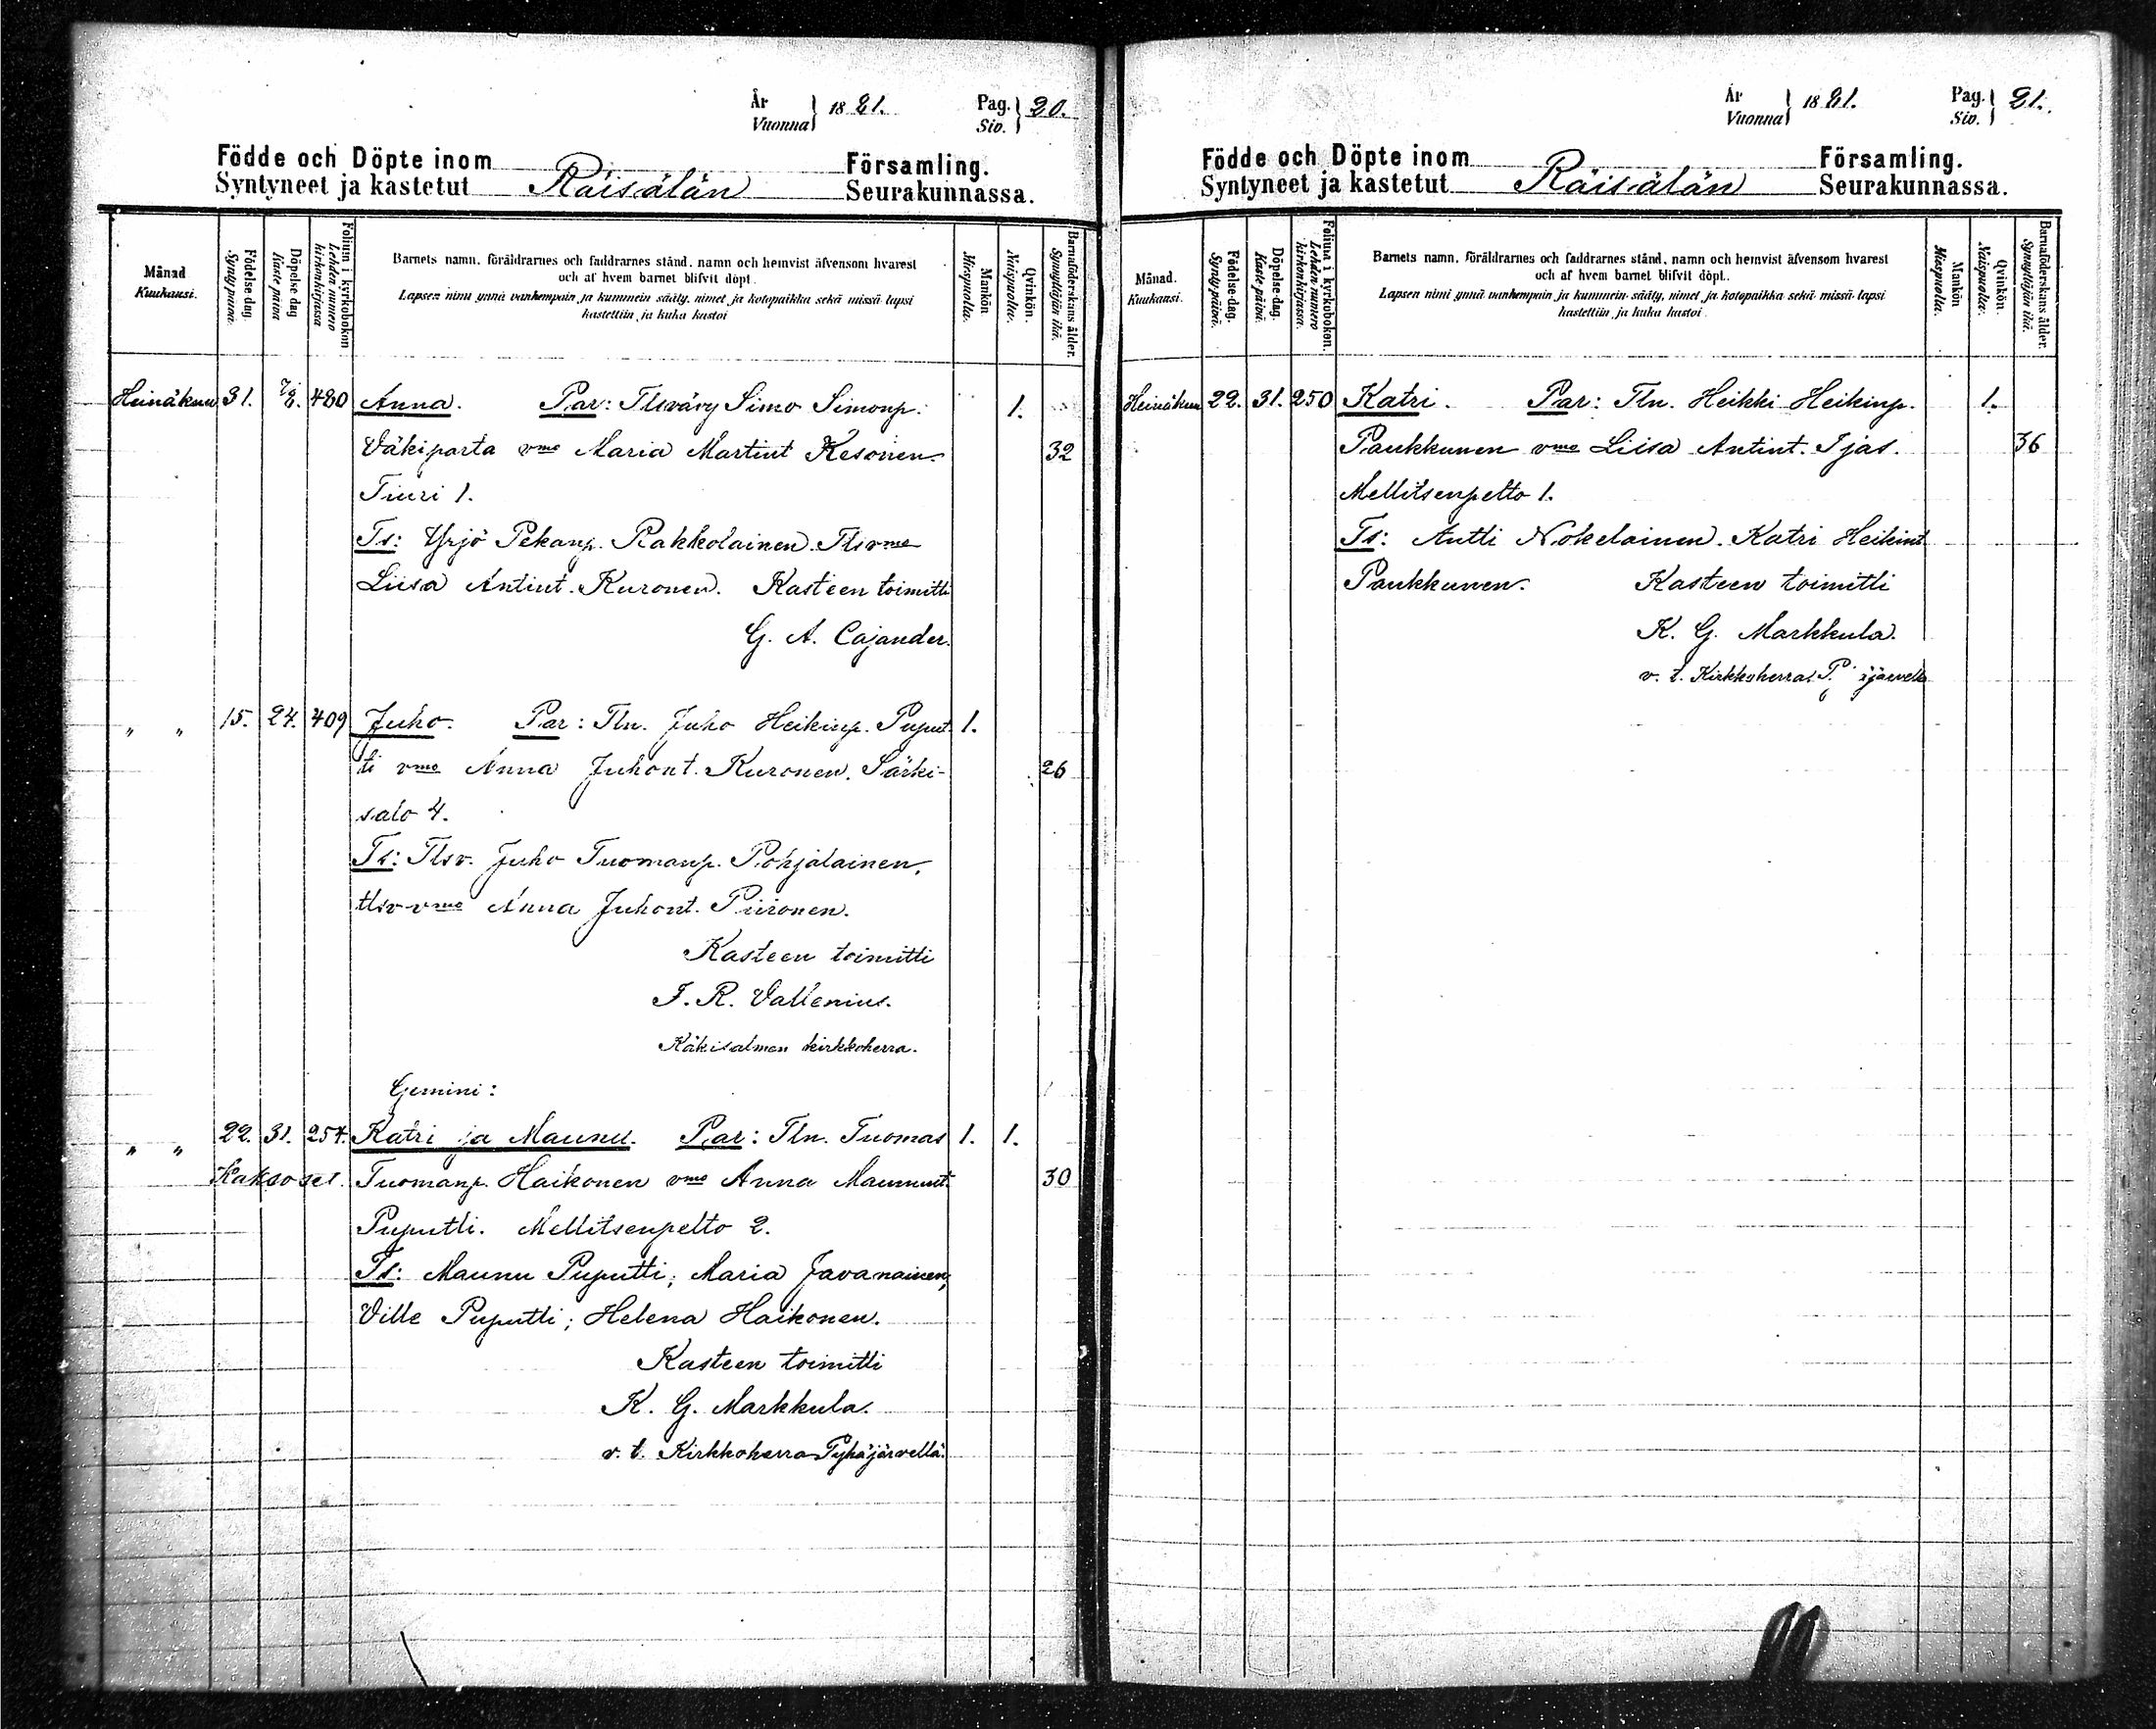 År
Vuonna } 1881.
Pag.
Siv. } 20.
Födde och Döpte inom Församling.
Syntyneet ja kastetut Räisälän Seurakunnassa.
Månad
Kuukausi.
Födelse dag.
Synty päivä.
Döpelse dag
Kaste päivä
Folium i kyrkoboken
Lehden numero kirkonkirjassa
Barnets namn, föräldrarnes och faddrarnes stånd, namn och hemvist äfvensom hvarest
och af hvem barnet blifvit döpt.
Lapsen nimi ynnä vanhempain ja kummein sääty, nimet ja kotopaikka sekä missä lapsi
kastettiin ja kuka kastoi
Mankön
Miespuolia.
Qvinkön.
Naispuolia.
Barnaföderskans ålder.
Synnyttäjän ikä.
Heinäkuu 31. 7/8. 480 Anna. Par: Tlsvävy Simo Simonp. 1.
Väkiparta vmo Maria Martint Kesonen. 32
Tiuri 1.
Ts: Yrjö Pekanp. Rakkolainen. Tlsvmo
Liisa Antint. Kuronen. Kasteen toimitti
G. A. Cajander.
" " 15. 24. 409 Juho. Par: Tln. Juho Heikinp. Puput- 1.
ti vmo Anna Juhont. Kuronen. Särki- 26
salo 4.
Ts: Tlsv. Juho Tuomanp. Pohjalainen,
tlsv vmo Anna Juhont. Piironen.
Kasteen toimitti
J. R. Vallenius.
Käkisalmen kirkkoherra.
Gemini:
" " 22. 31. 254. Katri ja Maunu. Par: Tln. Tuomas 1. 1.
Kaksoset. Tuomanp. Haikonen vmo Anna Maununt. 30
Puputti. Mellitsenpelto 2.
Ts: Maunu Puputti; Maria Javanainen;
Ville Puputti; Helena Haikonen.
Kasteen toimitti
K. G. Markkula.
v. t. Kirkkoherra Pyhäjärvellä.
År
Vuonna } 1881.
Pag.
Siv. } 21.
Födde och Döpte inom Församling.
Syntyneet ja kastetut Räisälän Seurakunnassa.
Månad.
Kuukausi.
Födelse-dag.
Synty-päivä.
Döpelse-dag.
Kaste-päivä.
Folium i kyrkoboken.
Lehden numero kirkonkirjassa.
Barnets namn, föräldrarnes och faddrarnes stånd, namn och hemvist äfvensom hvarest
och af hvem barnet blifvit döpt.
Lapsen nimi ynnä vanhempain ja kummein sääty, nimet ja kotopaikka sekä missä lapsi
kastettiin ja kuka kastoi.
Mankön
Miespuolia.
Qvinkön.
Naispuolia.
Barnaföderskans ålder.
Synnyttäjän ikä.
Heinäkuu 22. 31. 250 Katri. Par: Tln. Heikki Heikinp. 1.
Paukkunen vmo Liisa Antint. Ijas. 36
Mellitsenpelto 1.
Ts: Antti Nokelainen. Katri Heikint
Paukkunen. Kasteen toimitti
K. G. Markkula.
v. t. Kirkkoherra